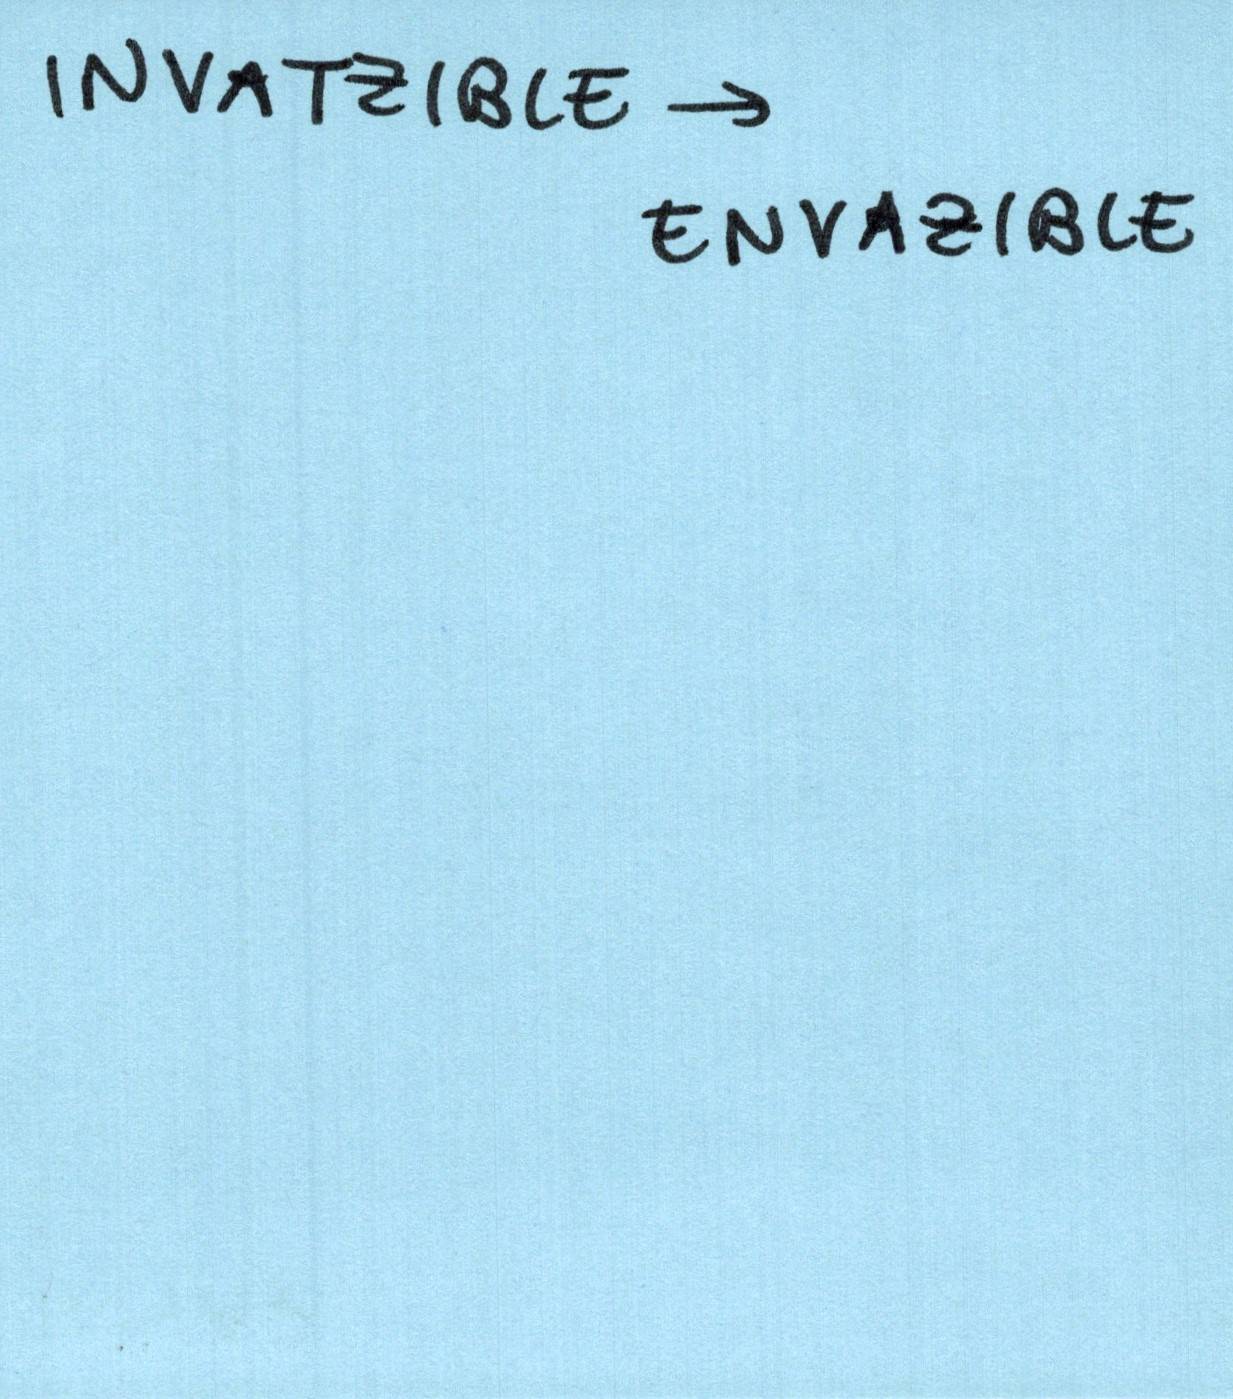 INVATZIBLE →
ENVAZIBLE